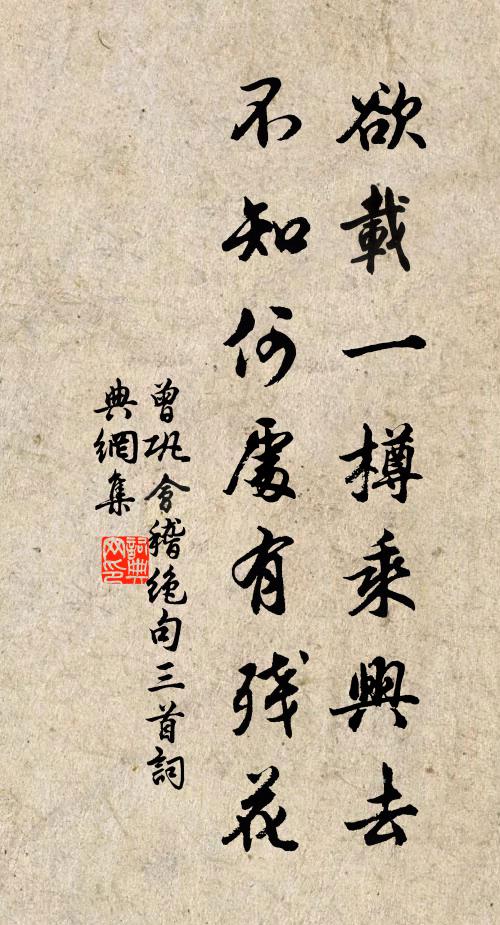 欲載一樽乘興去
不知何處有殘花
曾巩會稽絶句三首詞
典網集
詞典
网印